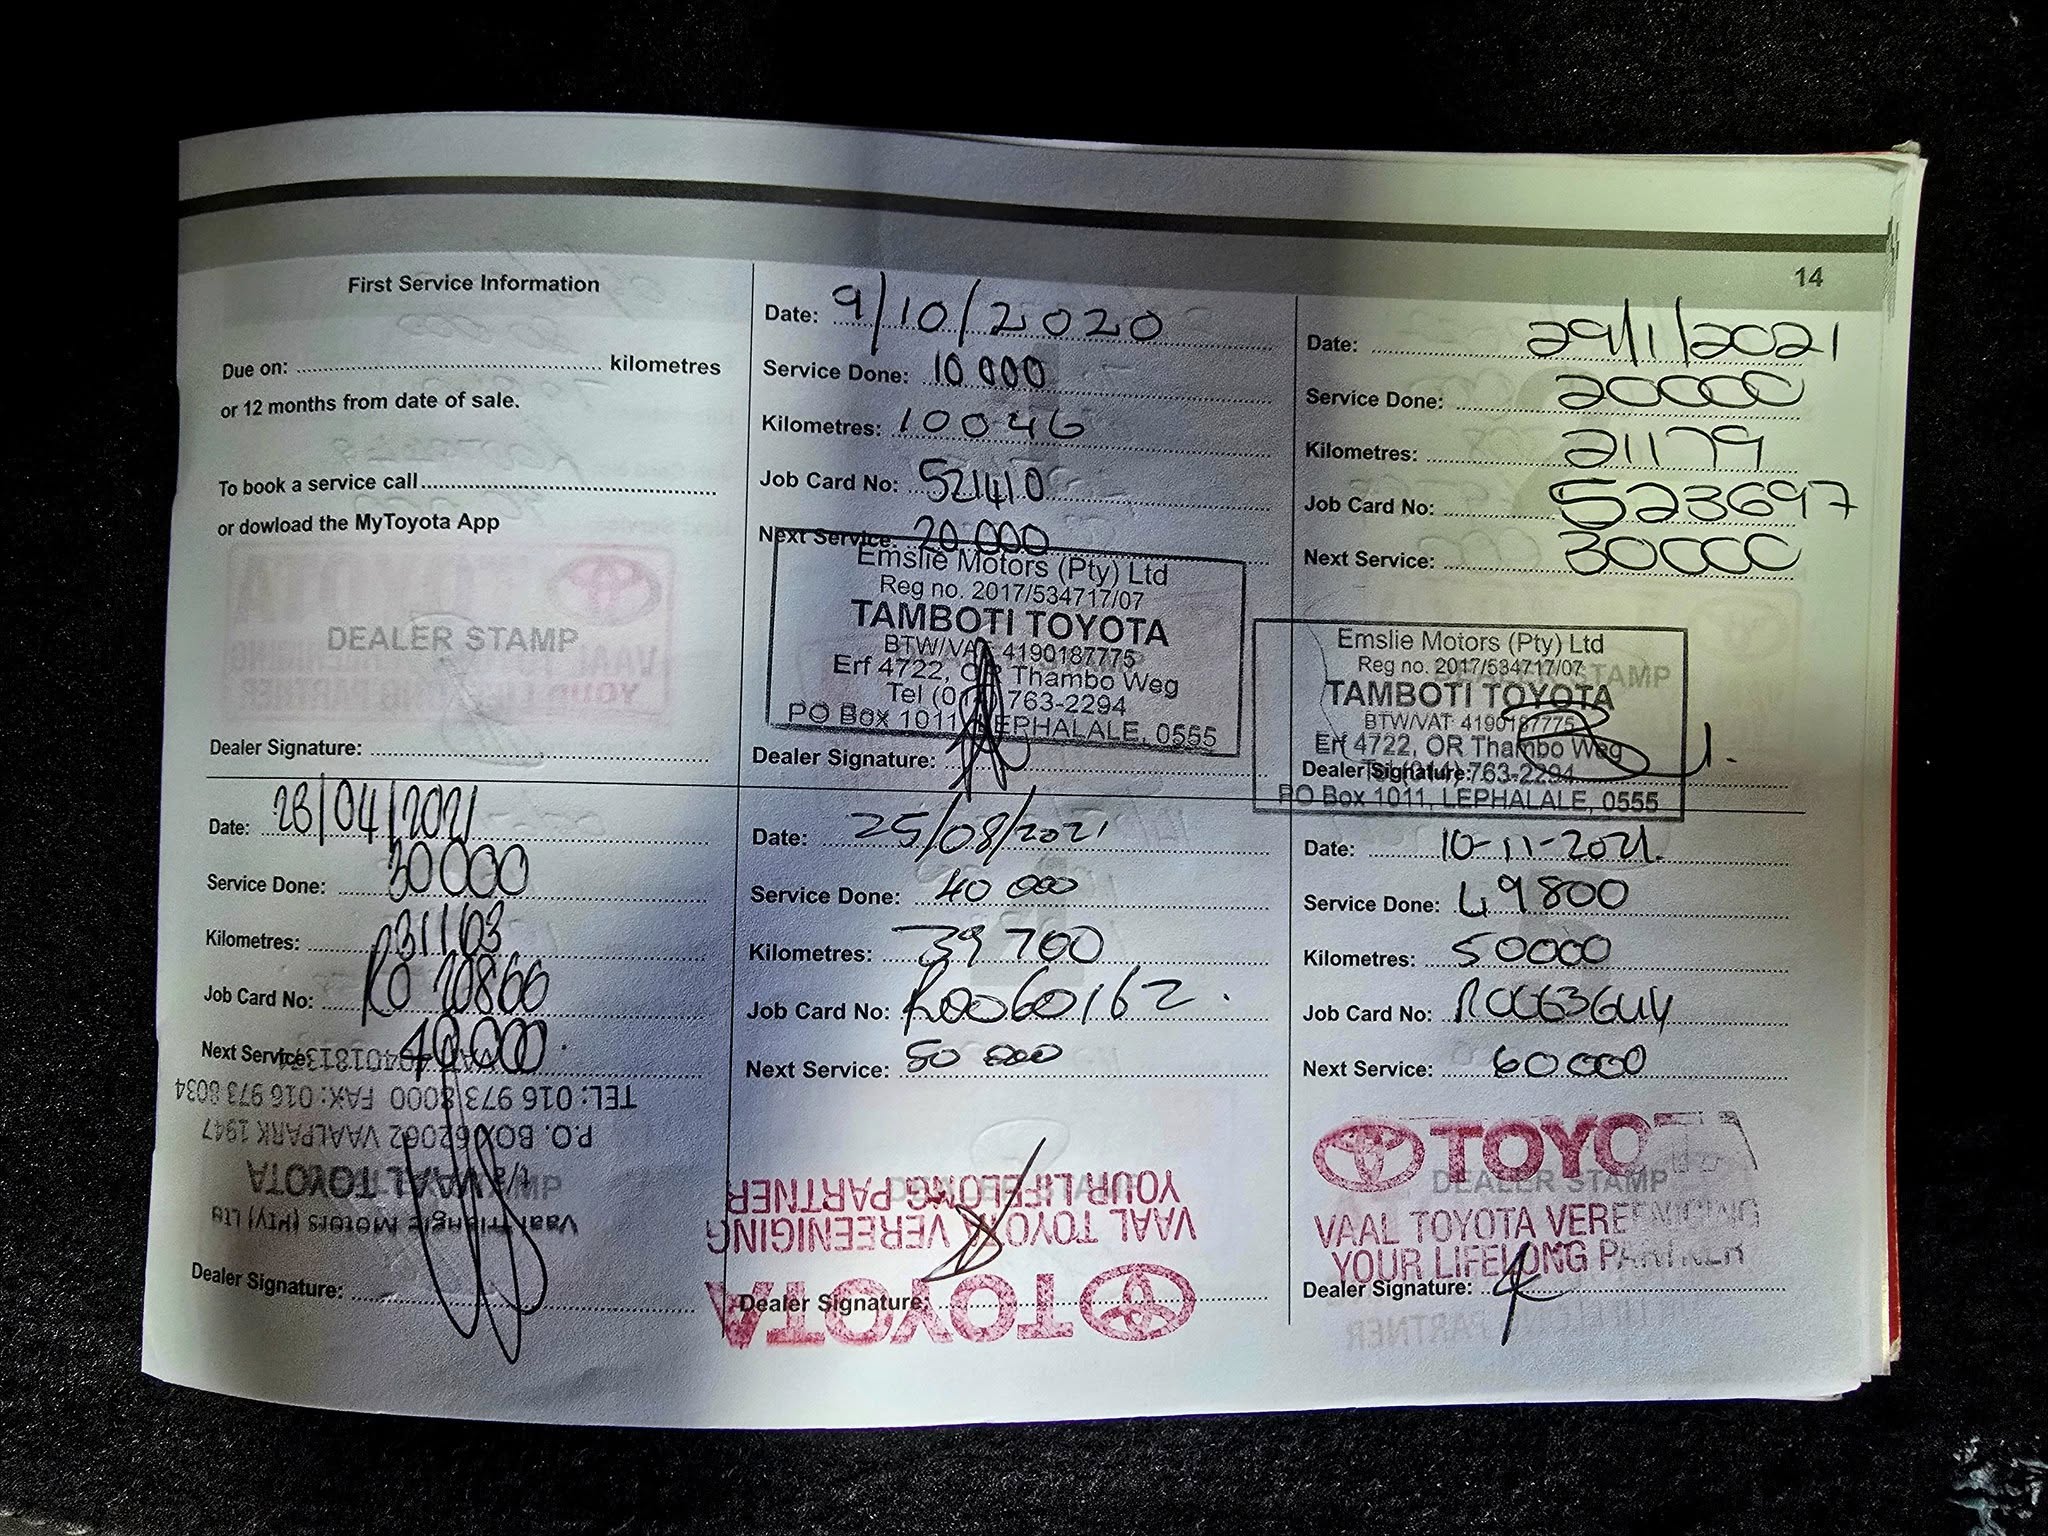 14
First Service Information
Due on: kilometres
or 12 months from date of sale.
To book a service call
or dowload the MyToyota App
DEALER STAMP
Dealer Signature:
Date: 9/10/2020
Service Done: 10 000
Kilometres: 10046
Job Card No: 521410
Next Service: 20 000
Emslie Motors (Pty) Ltd
Reg no. 2017/534717/07
TAMBOTI TOYOTA
BTW/VAT 4190187775
Erf 4722, OR Thambo Weg
Tel (0 763-2294
PO Box 1011, LEPHALALE, 0555
Dealer Signature:
Date: 29/1/2021
Service Done: 20000
Kilometres: 21179
Job Card No: 523697
Next Service: 30000
Emslie Motors (Pty) Ltd
Reg no. 2017/534717/07
TAMBOTI TOYOTA
BTW/VAT 4190187775
Erf 4722, OR Thambo Weg
Tel (014) 763-2294
PO Box 1011, LEPHALALE, 0555
Dealer Signature:
Date: 28/04/2021
Service Done: 30000
Kilometres: 31163
Job Card No:
Next Service: 40000
Vaal Triangle Motors (PTY) Ltd
t/a VAAL TOYOTA
P.O. BOX 62062 VAALPARK 1947
TEL: 016 973 8000 FAX: 016 973 8034
Dealer Signature:
Date: 25/08/2021
Service Done: 40 000
Kilometres: 39 700
Job Card No: R0060162
Next Service: 50 000
TOYOTA
VAAL TOYOTA VEREENIGING
YOUR LIFELONG PARTNER
Dealer Signature:
Date: 10-11-2021
Service Done: 49800
Kilometres: 50000
Job Card No:
Next Service: 60000
TOYOTA
DEALER STAMP
VAAL TOYOTA VEREENIGING
YOUR LIFELONG PARTNER
Dealer Signature: